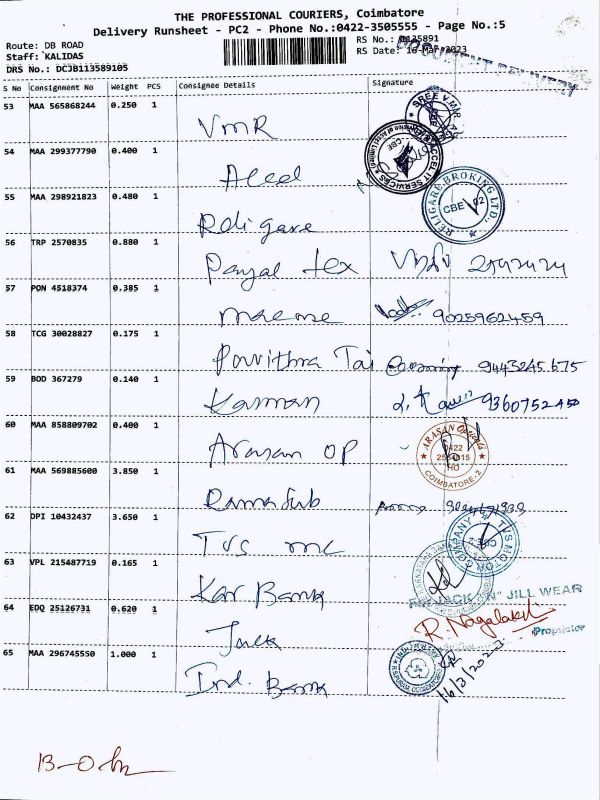 THE PROFESSIONAL COURIERS, Coimbatore
Delivery Runsheet - PC2 - Phone No.:0422-3505555 - Page No.:5
Route: DB ROAD
Staff: KALIDAS
DRS No.: DCJB113589105
RS No.:
RS Date: 16-Mar-2023
S No Consignment No Weight PCS Consignee Details Signature
53 MAA 565868244 0.250 1 VMR
54 MAA 299377790 0.400 1
ACCELIT SERVICES
55 MAA 298921823 0.480 1 Religare
RELIGARE BROKING LTD.
CBE
56 TRP 2570835 0.880 1 Payal tex
57 PON 4518374 0.385 1 9025962459
58 TCG 30028827 0.175 1 Pavithra Tai 9443245675
59 BOD 367279 0.140 1 Kannan 9360752450
60 MAA 858809702 0.400 1 Arasan OP
ARASAN Opticals
0422
HO
COIMBATORE-2
61 MAA 569885600 3.850 1
62 DPI 10432437 3.650 1 TVS mc
TVS MOTOR COMPANY
63 VPL 215487719 0.165 1 Kar Bank
JACK "N" JILL WEAR
64 EDQ 25126731 0.620 1 Jack
R. Nagalakshmi
Proprietor
65 MAA 296745550 1.000 1 Ind. Bank
16/3/2023